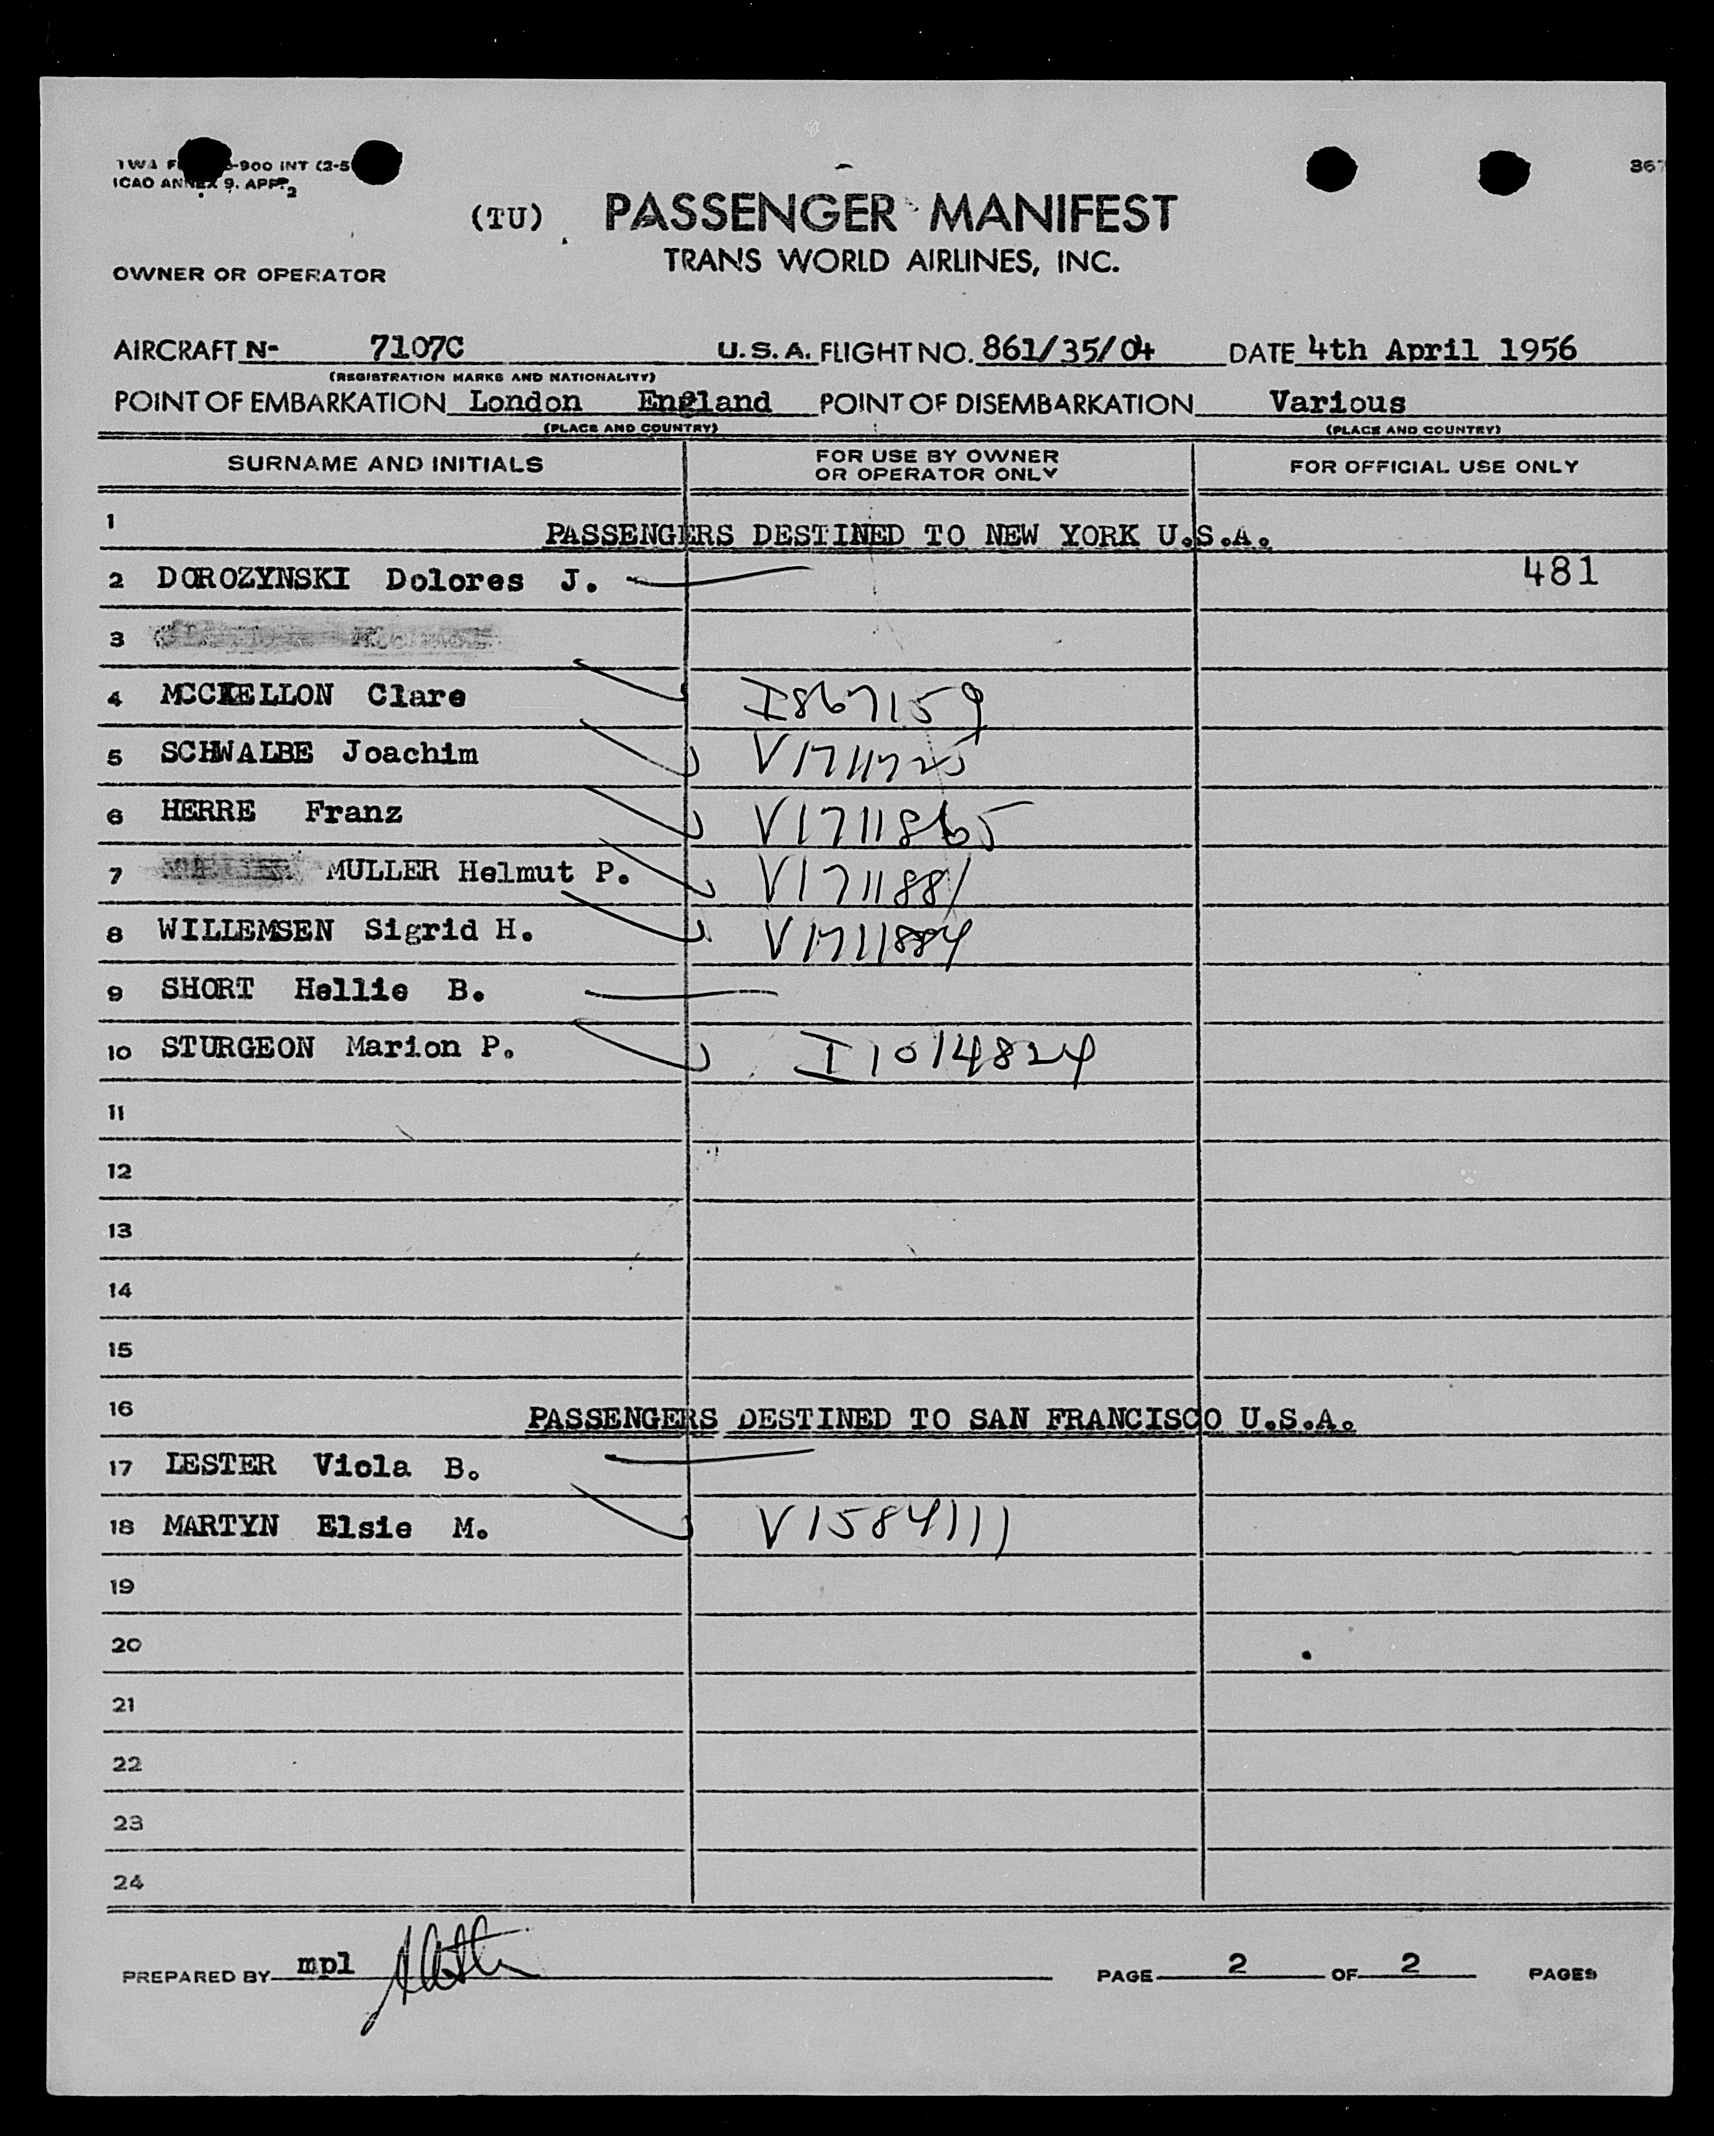 900 INT (2-5
ICAO ANNEX 9. APP. 2
867
(TU) PASSENGER MANIFEST
TRANS WORLD AIRLINES, INC.
OWNER OR OPERATOR
AIRCRAFT N- 7107C U.S.A. FLIGHT NO. 861/35/04 DATE 4th April 1956
(REGISTRATION MARKS AND NATIONALITY)
POINT OF EMBARKATION London England POINT OF DISEMBARKATION Various
(PLACE AND COUNTRY) (PLACE AND COUNTRY)
SURNAME AND INITIALS FOR USE BY OWNER OR OPERATOR ONLY FOR OFFICIAL USE ONLY
1 PASSENGERS DESTINED TO NEW YORK U.S.A.
2 DOROZYNSKI Dolores J. 481
3
4 Clare I867159
5 SCHWALBE Joachim V1711725
6 HERRE Franz V1711865
7 MULLER Helmut P. V1711881
8 WILLEMSEN Sigrid H. V1711884
9 SHORT Hellie B.
10 STURGEON Marion P. I1014824
11
12
13
14
15
16 PASSENGERS DESTINED TO SAN FRANCISCO U.S.A.
17 LESTER Viola B.
18 MARTYN Elsie M. V1584111
19
20
21
22
23
24
PREPARED BY mpl PAGE 2 OF 2 PAGES